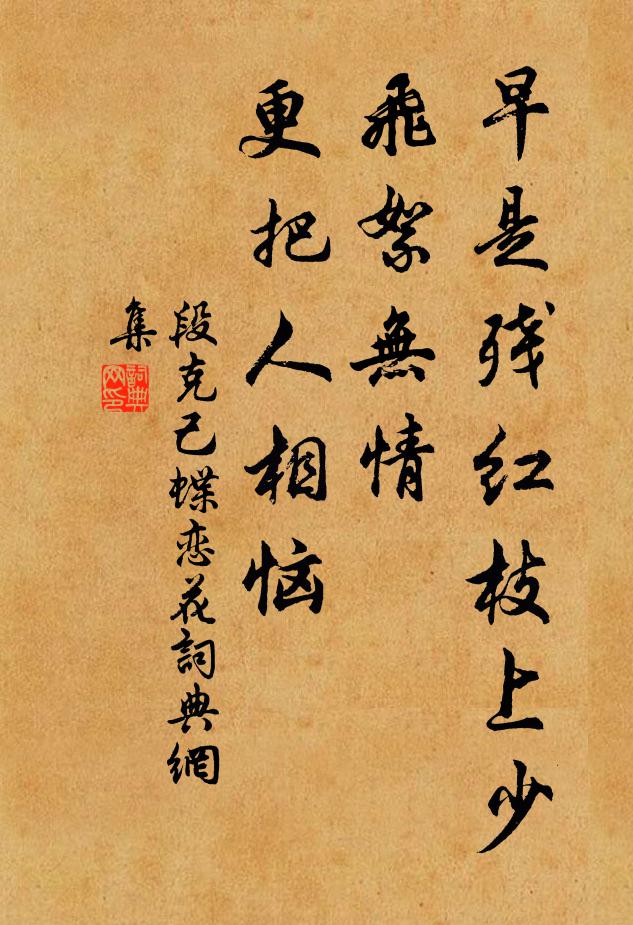 早是残红枝上少
飛絮無情
更把人相恼
段克己蝶恋花詞典網
集
詞典
网印